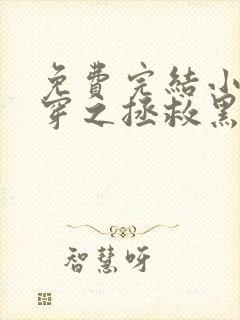 免費完結小
穿之拯救黑
智慧呀